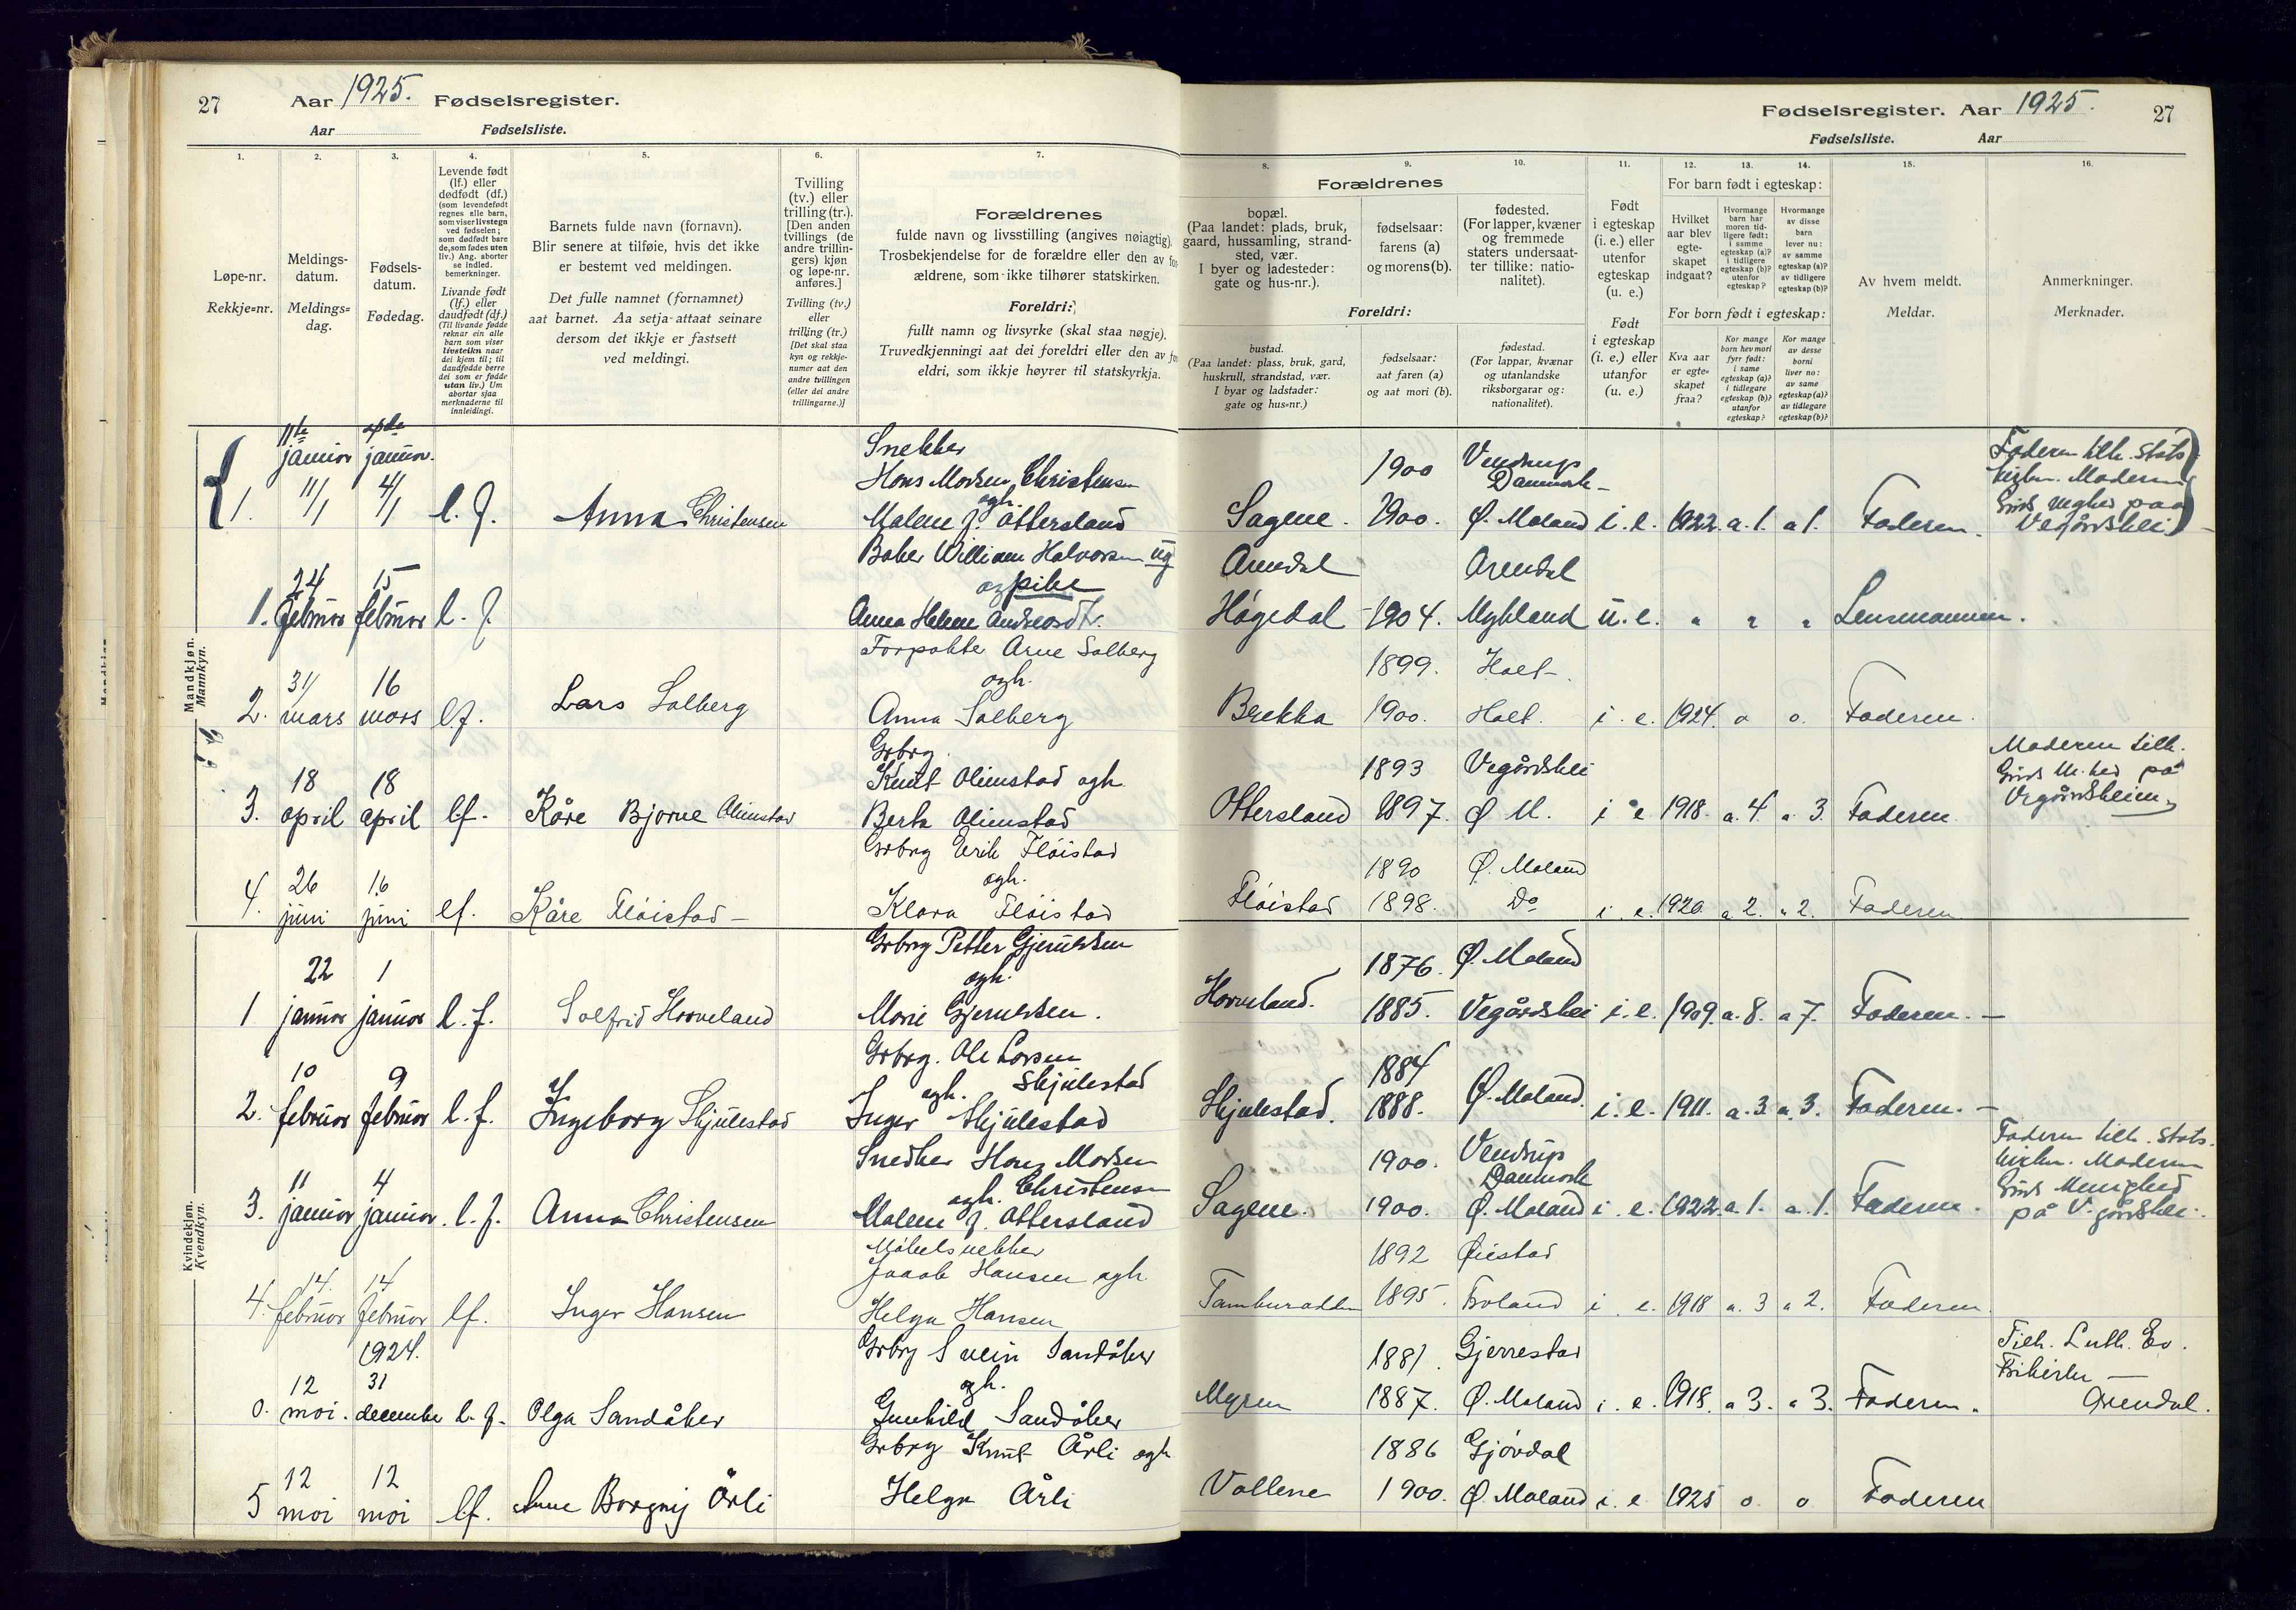 27 Aar 1925. Fødselsregister.
Aar Fødselsliste.
Fødselsregister. Aar 1925. 27
Fødselsliste. Aar
1. 2. 3. 4. 5. 6. 7.
Løpe-nr.
Rekkje=nr.
Meldings-
datum.
Meldings=
dag.
Fødsels-
datum.
Fødedag.
Levende født
(lf.) eller
dødfødt (df.)
(som levendefødt
regnes alle barn,
som viser livstegn
ved fødselen;
som dødfødt bare
de, som fødes uten
liv.) Ang. aborter
se indled.
bemerkninger.
Livande født
(lf.) eller
daudfødt (df.)
(Til livande fødde
reknar ein alle
barn som viser
livsteikn naar
dei kjem til; til
daudfødde berre
dei som er fødde
utan liv.) Um
abortar sjaa
merknaderne til
innleidingi.
Barnets fulde navn (fornavn).
Blir senere at tilføie, hvis det ikke
er bestemt ved meldingen.
Det fulle namnet (fornamnet)
aat barnet. Aa setja attaat seinare
dersom det ikkje er fastsett
ved meldingi.
Tvilling
(tv.) eller
trilling (tr.).
[Den anden
tvillings (de
andre trillin-
gers) kjøn
og løpe-nr.
anføres.]
Tvilling (tv.)
eller
trilling (tr.)
[Det skal staa
kyn og rekkje-
numer aat den
andre tvillingen
(eller dei andre
trillingarne.)]
Forældrenes
fulde navn og livsstilling (angives nøiagtig).
Trosbekjendelse for de forældre eller den av for-
ældrene, som ikke tilhører statskirken.
Foreldri:
fullt namn og livsyrke (skal staa nøgje).
Truvedkjenningi aat dei foreldri eller den av for-
eldri, som ikkje høyrer til statskyrkja.
8. 9. 10. 11. 12. 13. 14. 15. 16.
Forældrenes
bopæl.
(Paa landet: plads, bruk,
gaard, hussamling, strand-
sted, vær.
I byer og ladesteder:
gate og hus-nr.).
fødselsaar:
farens (a)
og morens (b).
fødested.
(For lapper, kvæner
og fremmede
staters undersaat-
ter tillike: natio-
nalitet).
Foreldri:
bustad.
(Paa landet: plass, bruk, gard,
huskrull, strandstad, vær.
I byar og ladstader:
gate og hus-nr.)
fødselsaar:
aat faren (a)
og aat mori (b).
fødestad.
(For lappar, kvænar
og utanlandske
riksborgarar og:
nationalitet).
Født
i egteskap
(i. e.) eller
utenfor
egteskap
(u. e.)
Født
i egteskap
(i. e.) eller
utanfor
(u. e.)
For barn født i egteskap:
Hvilket
aar blev
egte-
skapet
indgaat?
Hvormange
barn har
moren tid-
ligere født:
i samme
egteskap (a)?
i tidligere
egteskap (b)?
utenfor
egteskap?
Hvormange
av disse
barn
lever nu:
av samme
egteskap (a)?
av tidligere
egteskap (b)?
For born født i egteskap:
Kva aar
er egte=
skapet
fraa?
Kor mange
born hev mori
fyrr født:
i same
egteskap (a)?
i tidlegare
egteskap (b)?
utanfor
egteskap?
Kor mange
av desse
borni
liver no:
av same
egteskap (a)?
av tidlegare
egteskap (b)?
Av hvem meldt.
Meldar.
Anmerkninger.
Merknader.
Mandkjøn.
Mannkyn.
11te januar 4de januar.
Snekker
Hans Madsen Christensen
1900 Vendrup Danmark
Faderen tilh. Stats
kirken. Moderen
paa Vegårdshei
1. 11/1 4/1 l. f. Anna Christensen ogh. Malene J. Ottersland Sagene. 1900. Ø. Moland i. e. 1922. a. 1. a 1. Faderen.
Baker William Halvorsen ug Arendal Arendal
og pike
1. 24 februar 15 februar l. f. Anna Helene Andreasdtr. Høgedal 1904. Mykland u. e. " " " Lensmannen.
Forpakter Arne Solberg 1899. Holt.
ogh.
2. 31/ mars 16 mars lf. Lars Solberg Anna Solberg Brekka 1900. Holt. i. e. 1924. o o. Faderen.
Grbrg.
Knut Olimstad ogh. 1893 Vegårdshei
Moderen tilh.
på
Vegårdsheien
3. 18 april 18 april lf. Kåre Bjarne Olimstad Berta Olimstad Ottersland 1897. Ø M. i e 1918. a. 4. a 3. Faderen
Grbrg Erik Fløistad 1890 Ø. Moland
ogh.
4. 26 juni 16 juni lf. Kåre Fløistad Klara Fløistad Fløistad 1898. Do i. e. 1920 a 2. a 2. Faderen
Kvindekjøn.
Kvendkyn.
Grbrg Petter Gjerulfsen 1876. Ø. Moland
ogh.
1 22 januar 1 januar l. f. Solfrid Hovveland Marie Gjerulfsen. 1885. Vegårdshei i. e. 1909. a. 8. a 7. Faderen.
Grbrg. Ole Larsen Skjulestad 1884
ogh.
2. 10 februar 9 februar l. f. Ingeborg Skjulestad Inger Skjulestad Skjulestad. 1888. Ø. Moland. i. e. 1911. a. 3 a. 3. Faderen.
Snedker Hans Madsen Christensen 1900. Vendrup Danmark
ogh.
Faderen tilh. Stats-
kirken. Moderen
Menighed
på Vegårdshei.
3. 11 januar 4 januar. l. f. Anna Christensen Malene J. Ottersland Sagene. 1900. Ø. Moland i. e. 1922. a 1. a. 1. Faderen.
Møbelsnekker
Jacob Hansen ogh. 1892 Øiestad
4. 14. februar 14 februar lf. Inger Hansen Helga Hansen 1895. Froland i e. 1918 a. 3 a 2. Faderen.
1924.
Grbrg Svein Sandåker 1881. Gjerrestad
ogh.
Tilh. Luth. Ev.
Frikirke
Arendal.
0. 12 mai. 31 december l. f. Olga Sandåker Gunhild Sandåker Myren 1887. Ø. Moland i. e. 1918. a 3. a 3. Faderen.
Grbrg Knut Årli ogh 1886 Gjøvdal
5 12 mai 12 mai lf. Anne Borgny Årli Helga Årli Vallene 1900. Ø. Moland i. e 1925 o. o Faderen